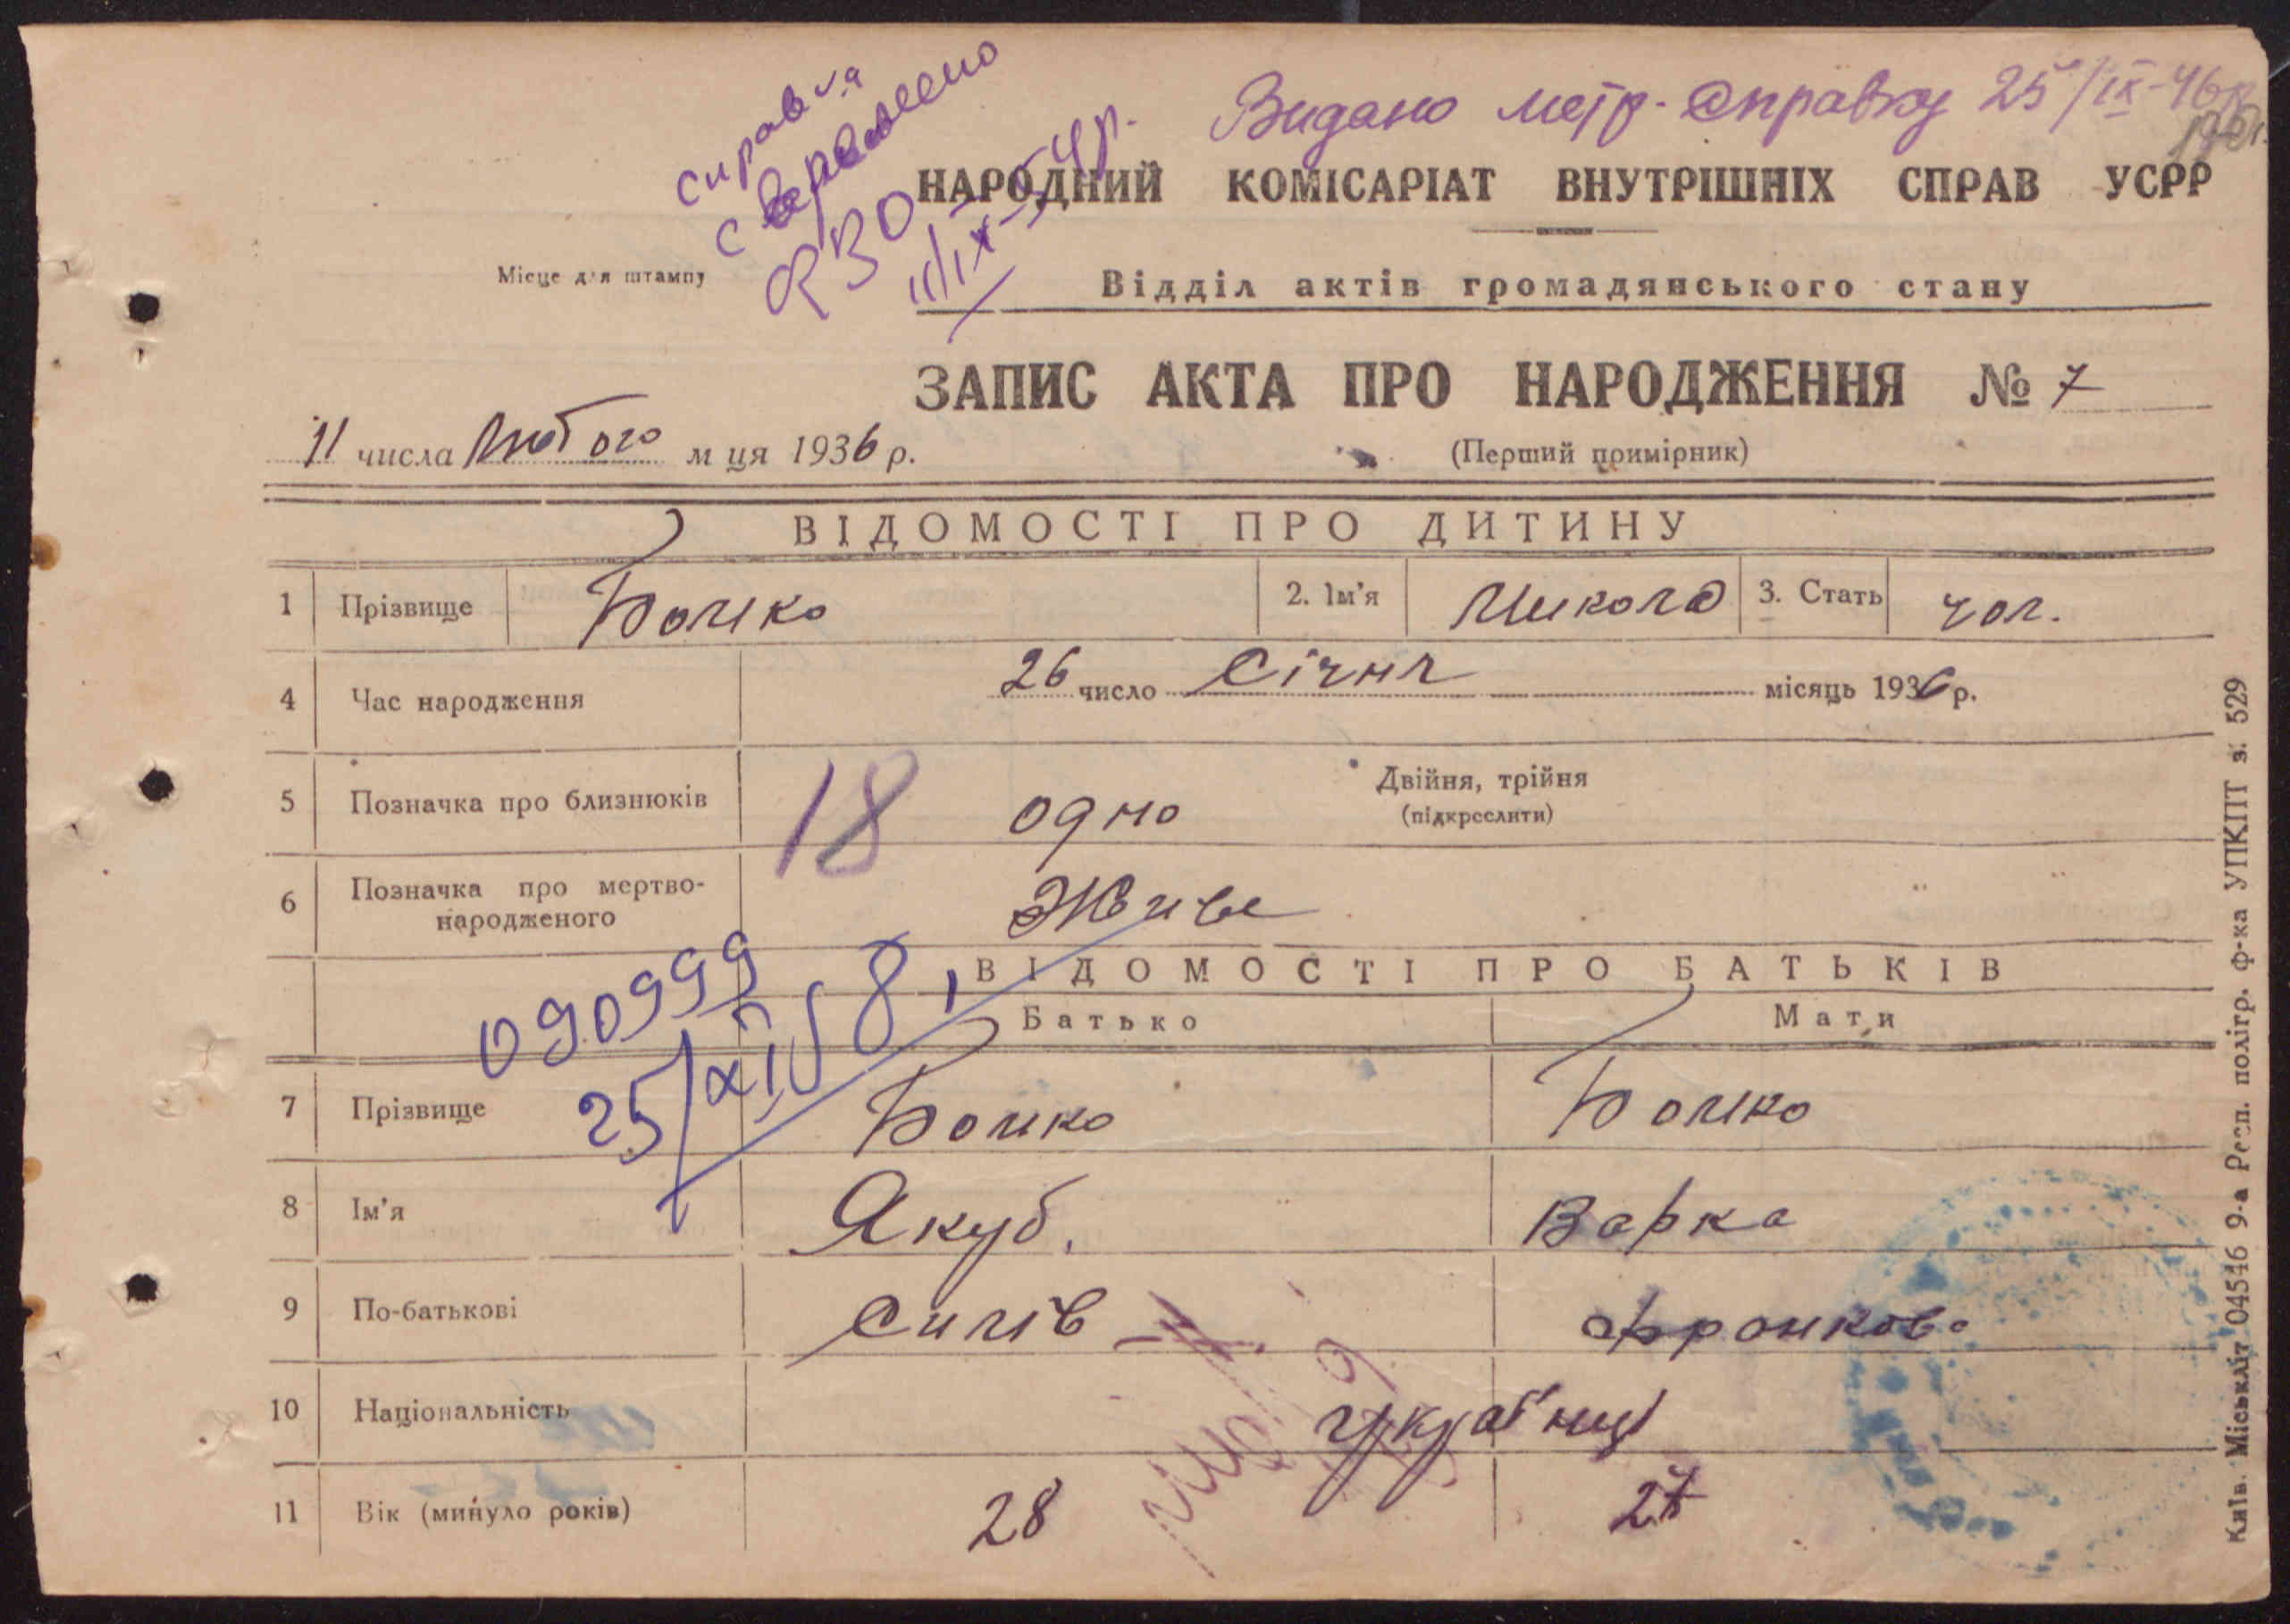 Видано метр. Справку 25/IX-46р
НАРОДНИЙ КОМІСАРІАТ ВНУТРІШНІХ СПРАВ УСРР
Місце для штампу
Відділ актів громадянського стану
ЗАПИС АКТА ПРО НАРОДЖЕННЯ № 7
11 числа Лютого м ця 1936 р.
(Перший примірник)
ВІДОМОСТІ ПРО ДИТИНУ
1 Прізвище Бойко 2. Ім'я Микола 3. Стать чол.
4 Час народження 26 число Січня місяць 1936 р.
5 Позначка про близнюків 18 одно Двійня, трійня
(підкреслити)
6 Позначка про мертво-
народженого Живе
090999
25/XII 58,
ВІДОМОСТІ ПРО БАТЬКІВ
Батько Мати
7 Прізвище Бойко Бойко
8 Ім'я Якуб. Варка
9 По-батькові Силів
10 Національність українці
11 Вік (минуло років) 28
Київ. Міськліт 04546 9-а Респ. полігр. ф-ка УПКПТ з. 529